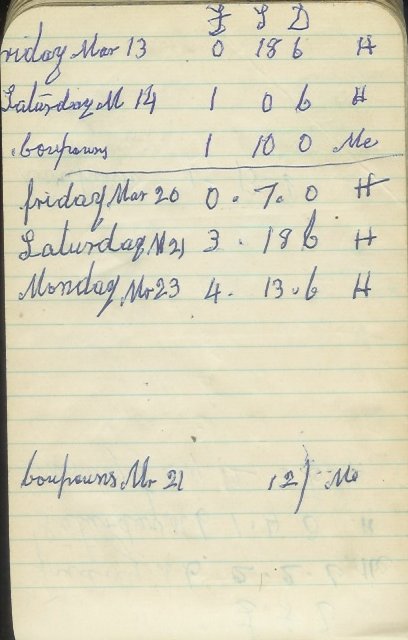 £ S D
Friday Mar 13 0 18 6 H
Saturday M 14 1 0 6 H
Coupouns 1 10 0 Me
Friday Mar 20 0. 7. 0 H
Saturday M 21 3. 18 6 H
Monday Mr 23 4. 13. 6 H
Coupouns Mr 21 12/ Me